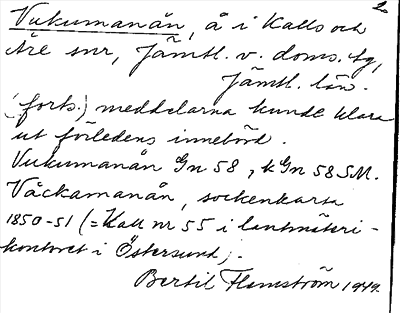 2.
Vukumanån, å i Kalls och
Åre snr, Jämtl. v. doms. tg,
Jämtl. län.
(forts.) meddelarna kunde klara
ut förledens innebörd.
Vukumanån Gn 58, k Gn 58 SM.
Våckamanån, sockenkarta
1850-51 (= Kall nr 55 i lantmäteri-
kontoret i Östersund).
Bertil Flemström 1949.